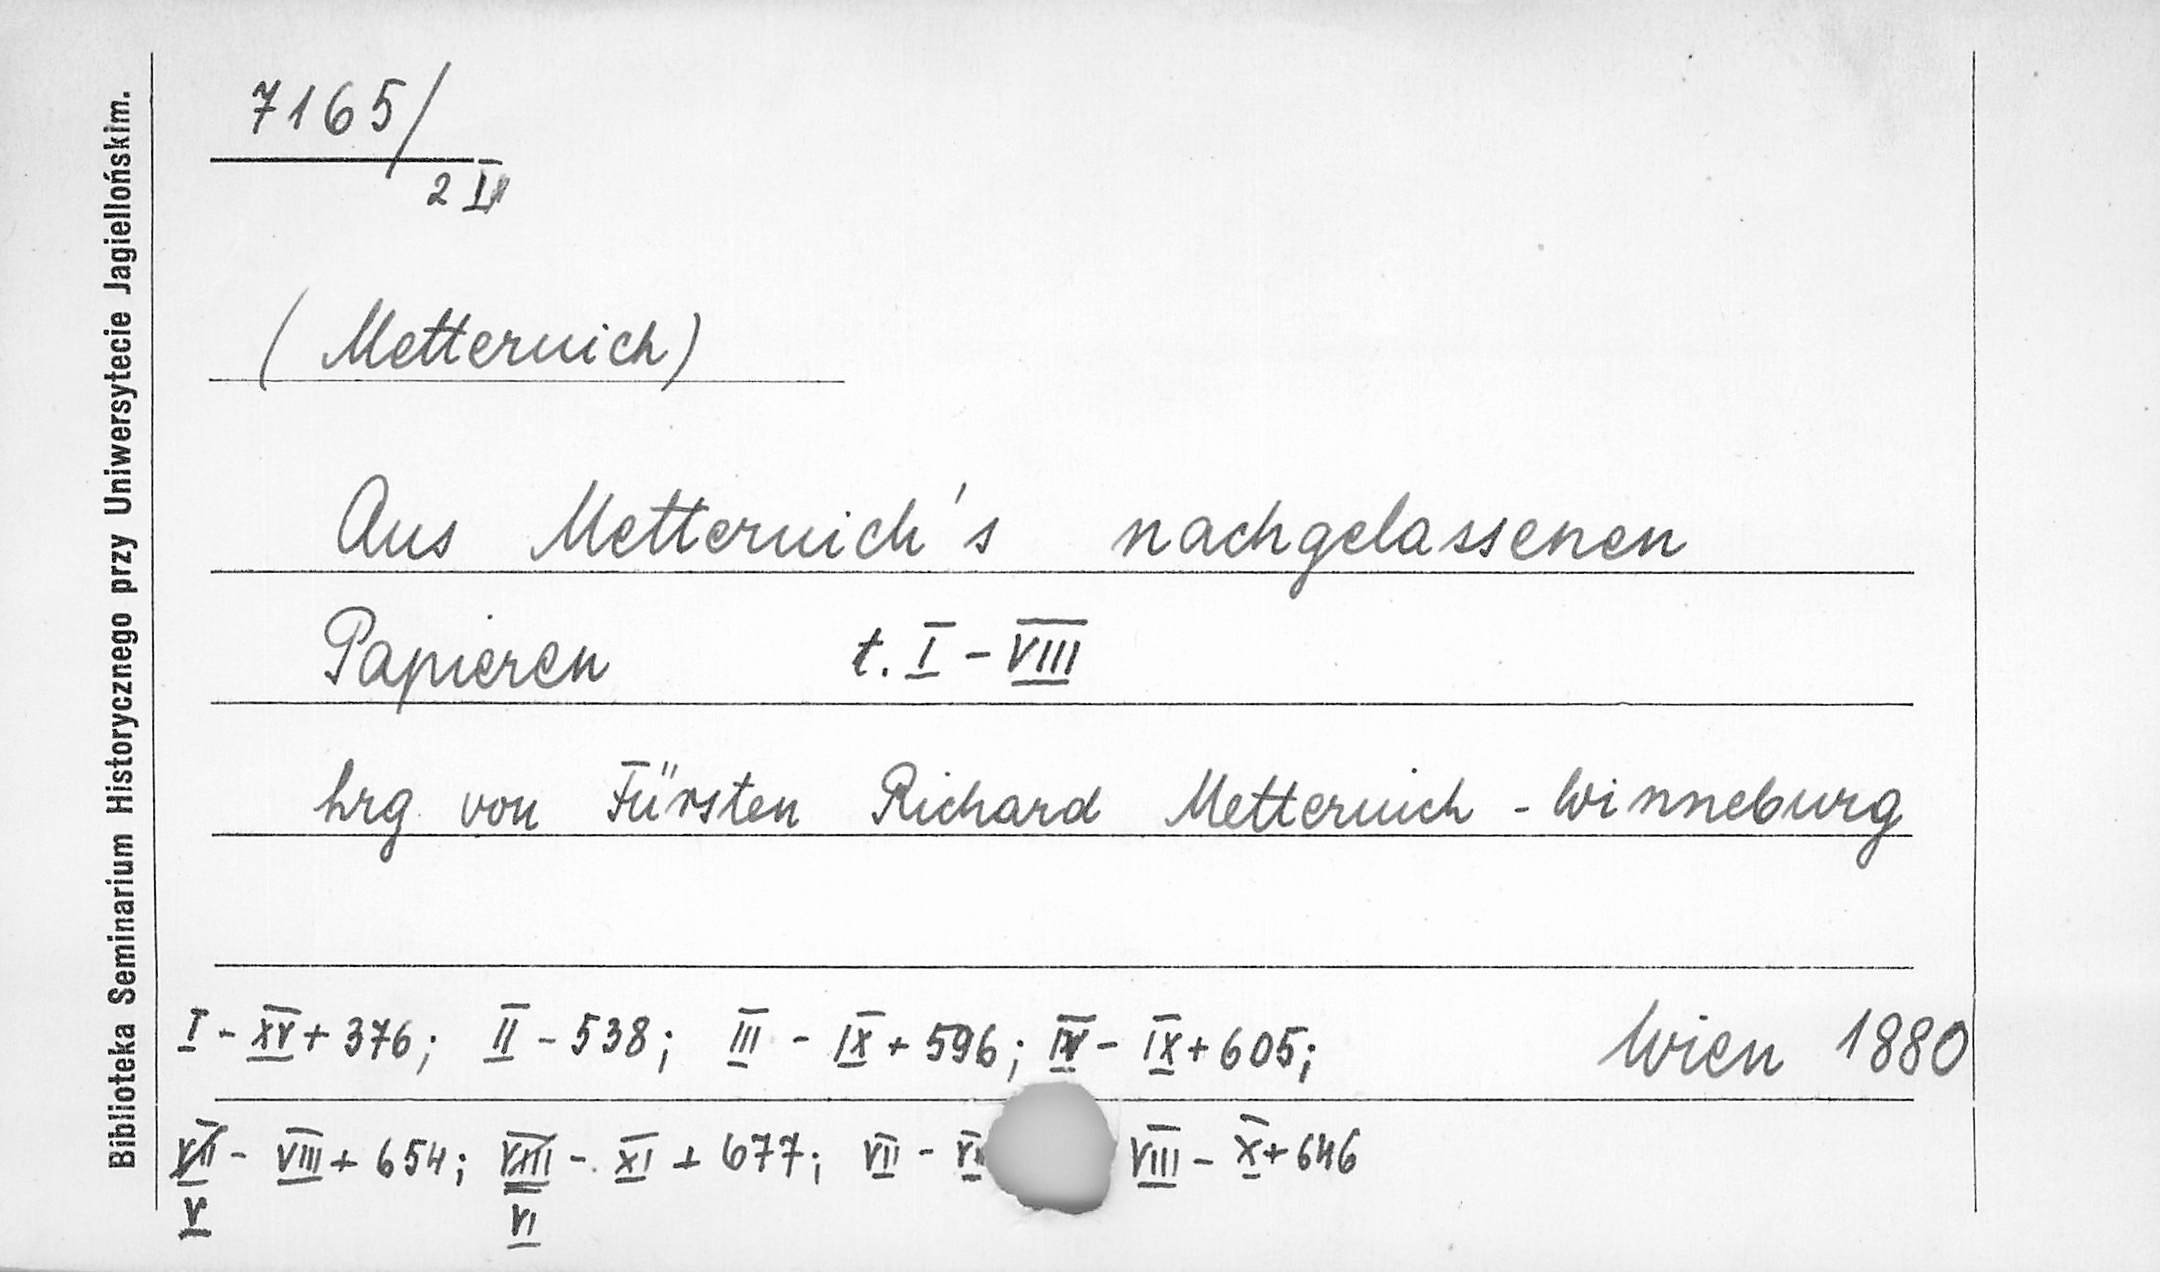 Biblioteka Seminarium Historycznego przy Uniwersytecie Jagiellońskim.
7165/
2 I
(Metternich)
Aus Metternich's nachgelassenen
Papieren t. I - VIII
hrg von Fürsten Richard Metternich - Winneburg
I - XV + 376; II - 538; III - IX + 596; IV - IX + 605; Wien 1880
VII - VIII + 654; VIII - XI + 677; VII - VIII - X + 646
V VI